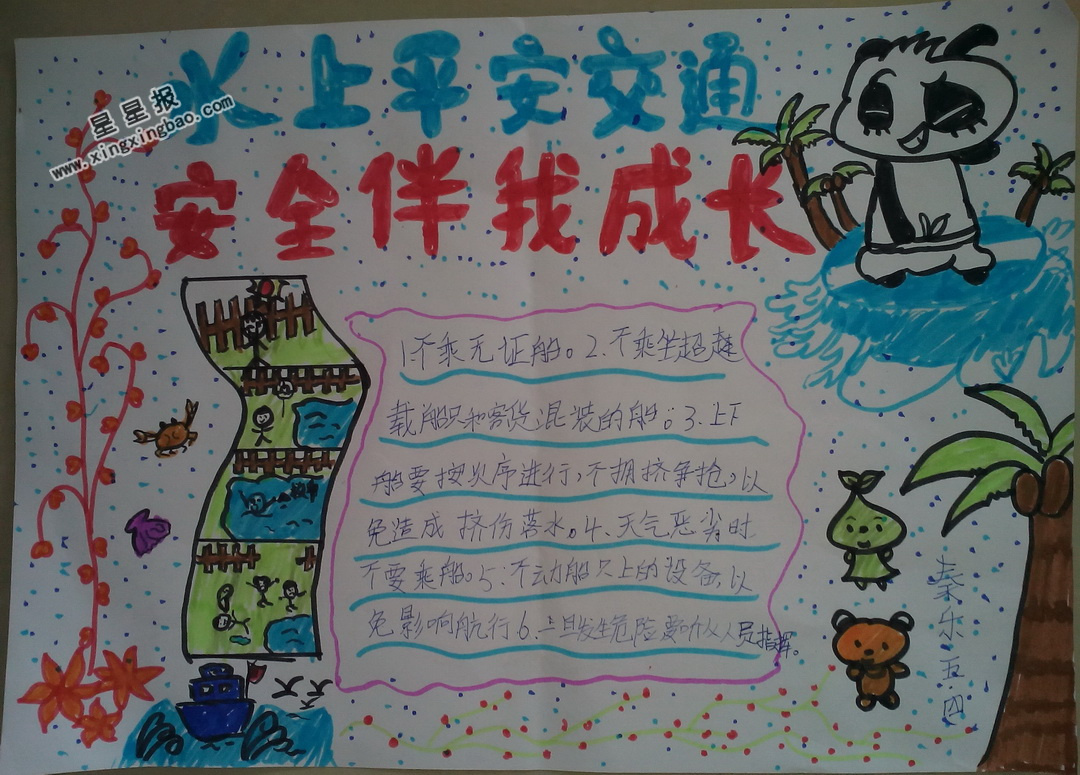 水上平安交通
星星报
www.xingxingbao.com
安全伴我成长
1不乘无证船。2、不乘坐超越
载船只和客货混装的船。3、上下
船要按次序进行,不拥挤争抢,以
免造成挤伤落水。4、天气恶劣时
不要乘船。5、不动船只上的设备以
免影响航行6、一旦发生危险要听从人员指挥。
秦乐 五四